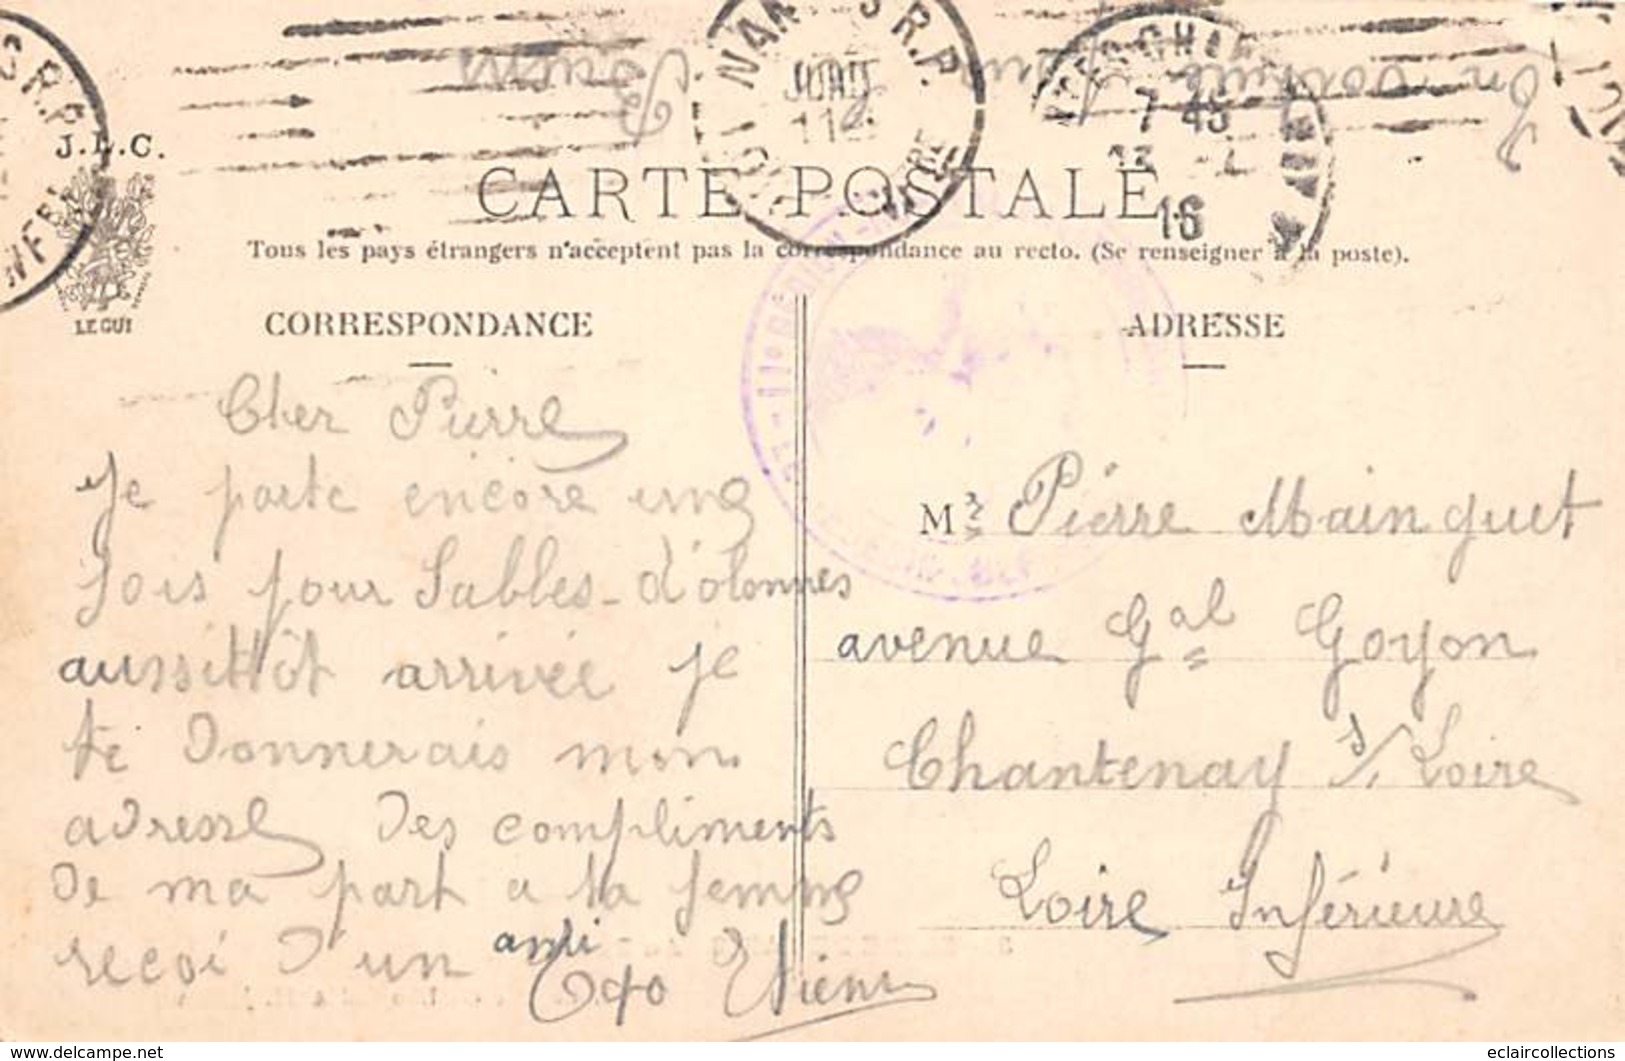 J.L.C.
LE GUI
NANTES R.P.
7 45
16
CARTE POSTALE
Tous les pays étrangers n'acceptent pas la correspondance au recto. (Se renseigner à la poste).
CORRESPONDANCE
Cher Pierre
Je parte encore une
fois pour Sables-d'olonnes
aussittôt arrivée je
te donnerais mon
adresse des compliments
de ma part a ta femme
reçoi d'un ami
ADRESSE
Mr Pierre Mainguet
avenue Gal Goyon
Chantenay s/ Loire
Loire Inférieure
eclaircollections.delcampe.net
eclaircollections